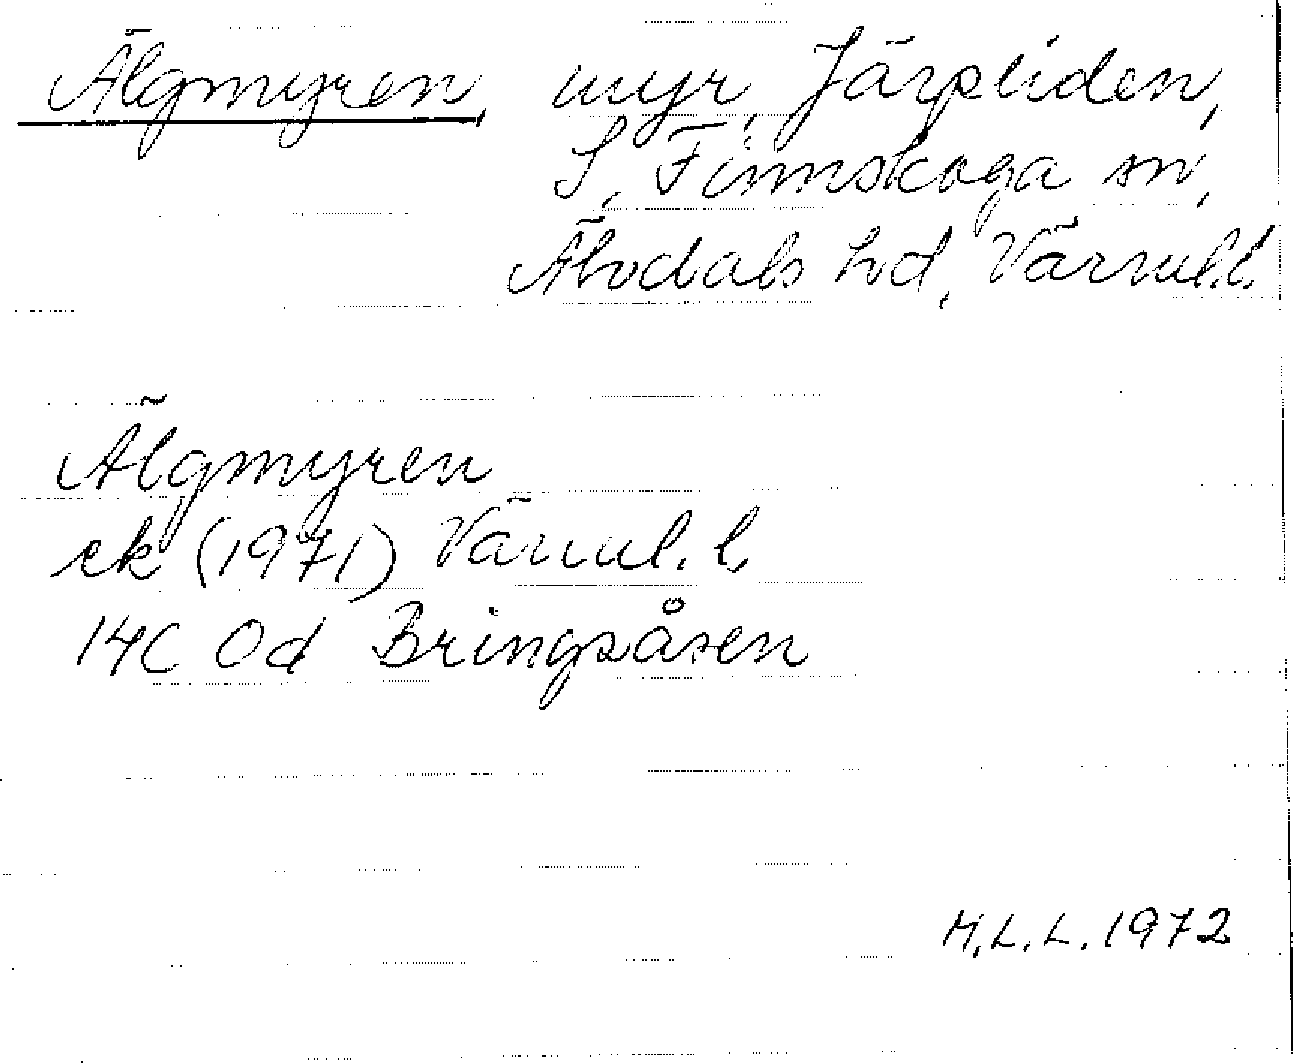 Älgmyren, myr, Järpliden,
S. Finnskoga sn,
Älvdals hd, Värml.l.
Älgmyren
ek (1971) Värml. l.
14C 0d Bringsåsen
M.L.L. 1972